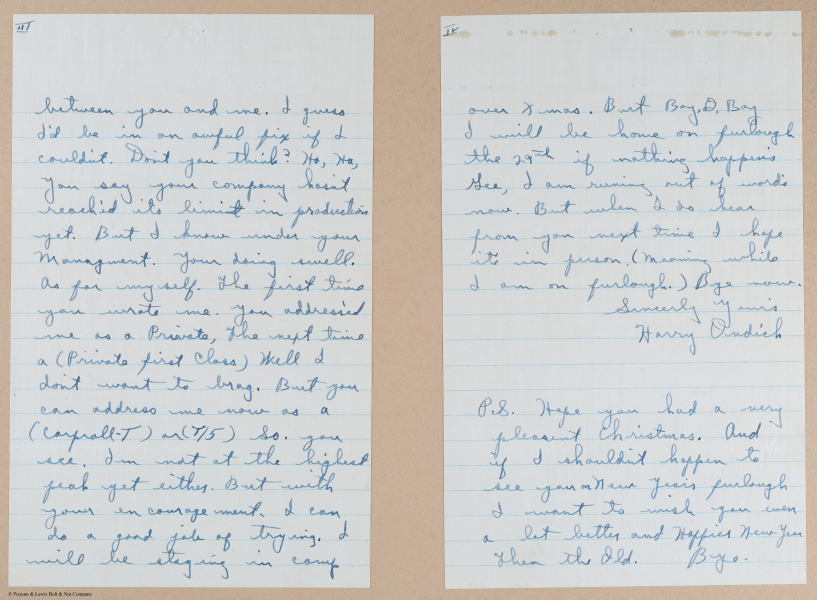 III
between you and me. I guess
I'd be in an awful fix if I
couldnt. Dont you think? Ho, Ha,
You say your company hasnt
reachd its limit in production
yet. But I know under your
Managment. Your doing swell.
As for my self. The first time
you wrote me. You addressed
me as a Private, The next time
a (Private first Class) Well I
dont want to brag. But you
can address me now as a
(Corprall-T) or (T/5) So. you
see. I'm not at the highest
peak yet either. But with
your encouragement. I can
do a good job of trying. I
will be staying in camp
IV
over Xmas. But Boy, O, Boy
I will be home on furlough
the 29th if nothing happens
Gee, I am runing out of words
now. But when I do hear
from you next time I hope
its in person. (Meaning while
I am on furlough.) Bye now.
Sincerly Yours
Harry
P.S. Hope you had a very
pleasent Christmas. And
if I shouldnt happen to
see you on New Years furlough
I want to wish you even
a lot better and Happier New Year
then the Old. Bye.
© Pixeum & Lewis Bolt & Nut Company